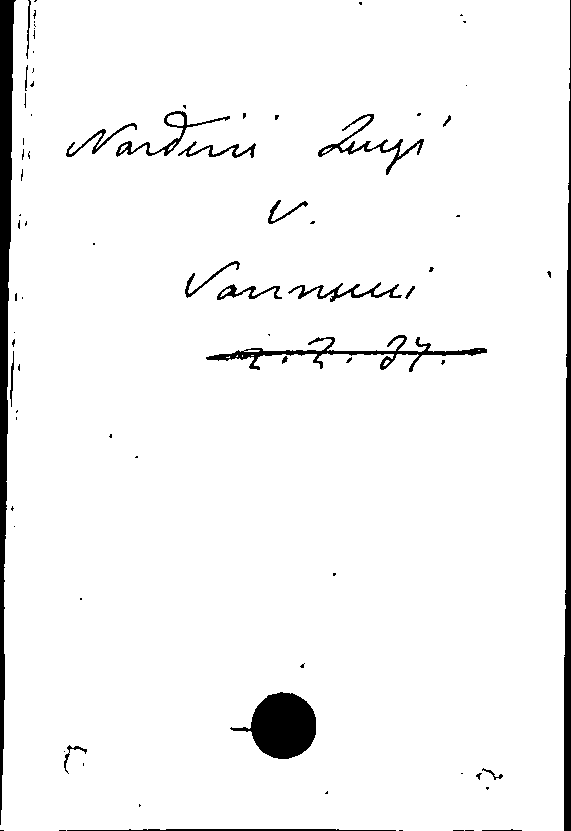 Nardini Luigi
V.
Vannucci
2. 2. 37.